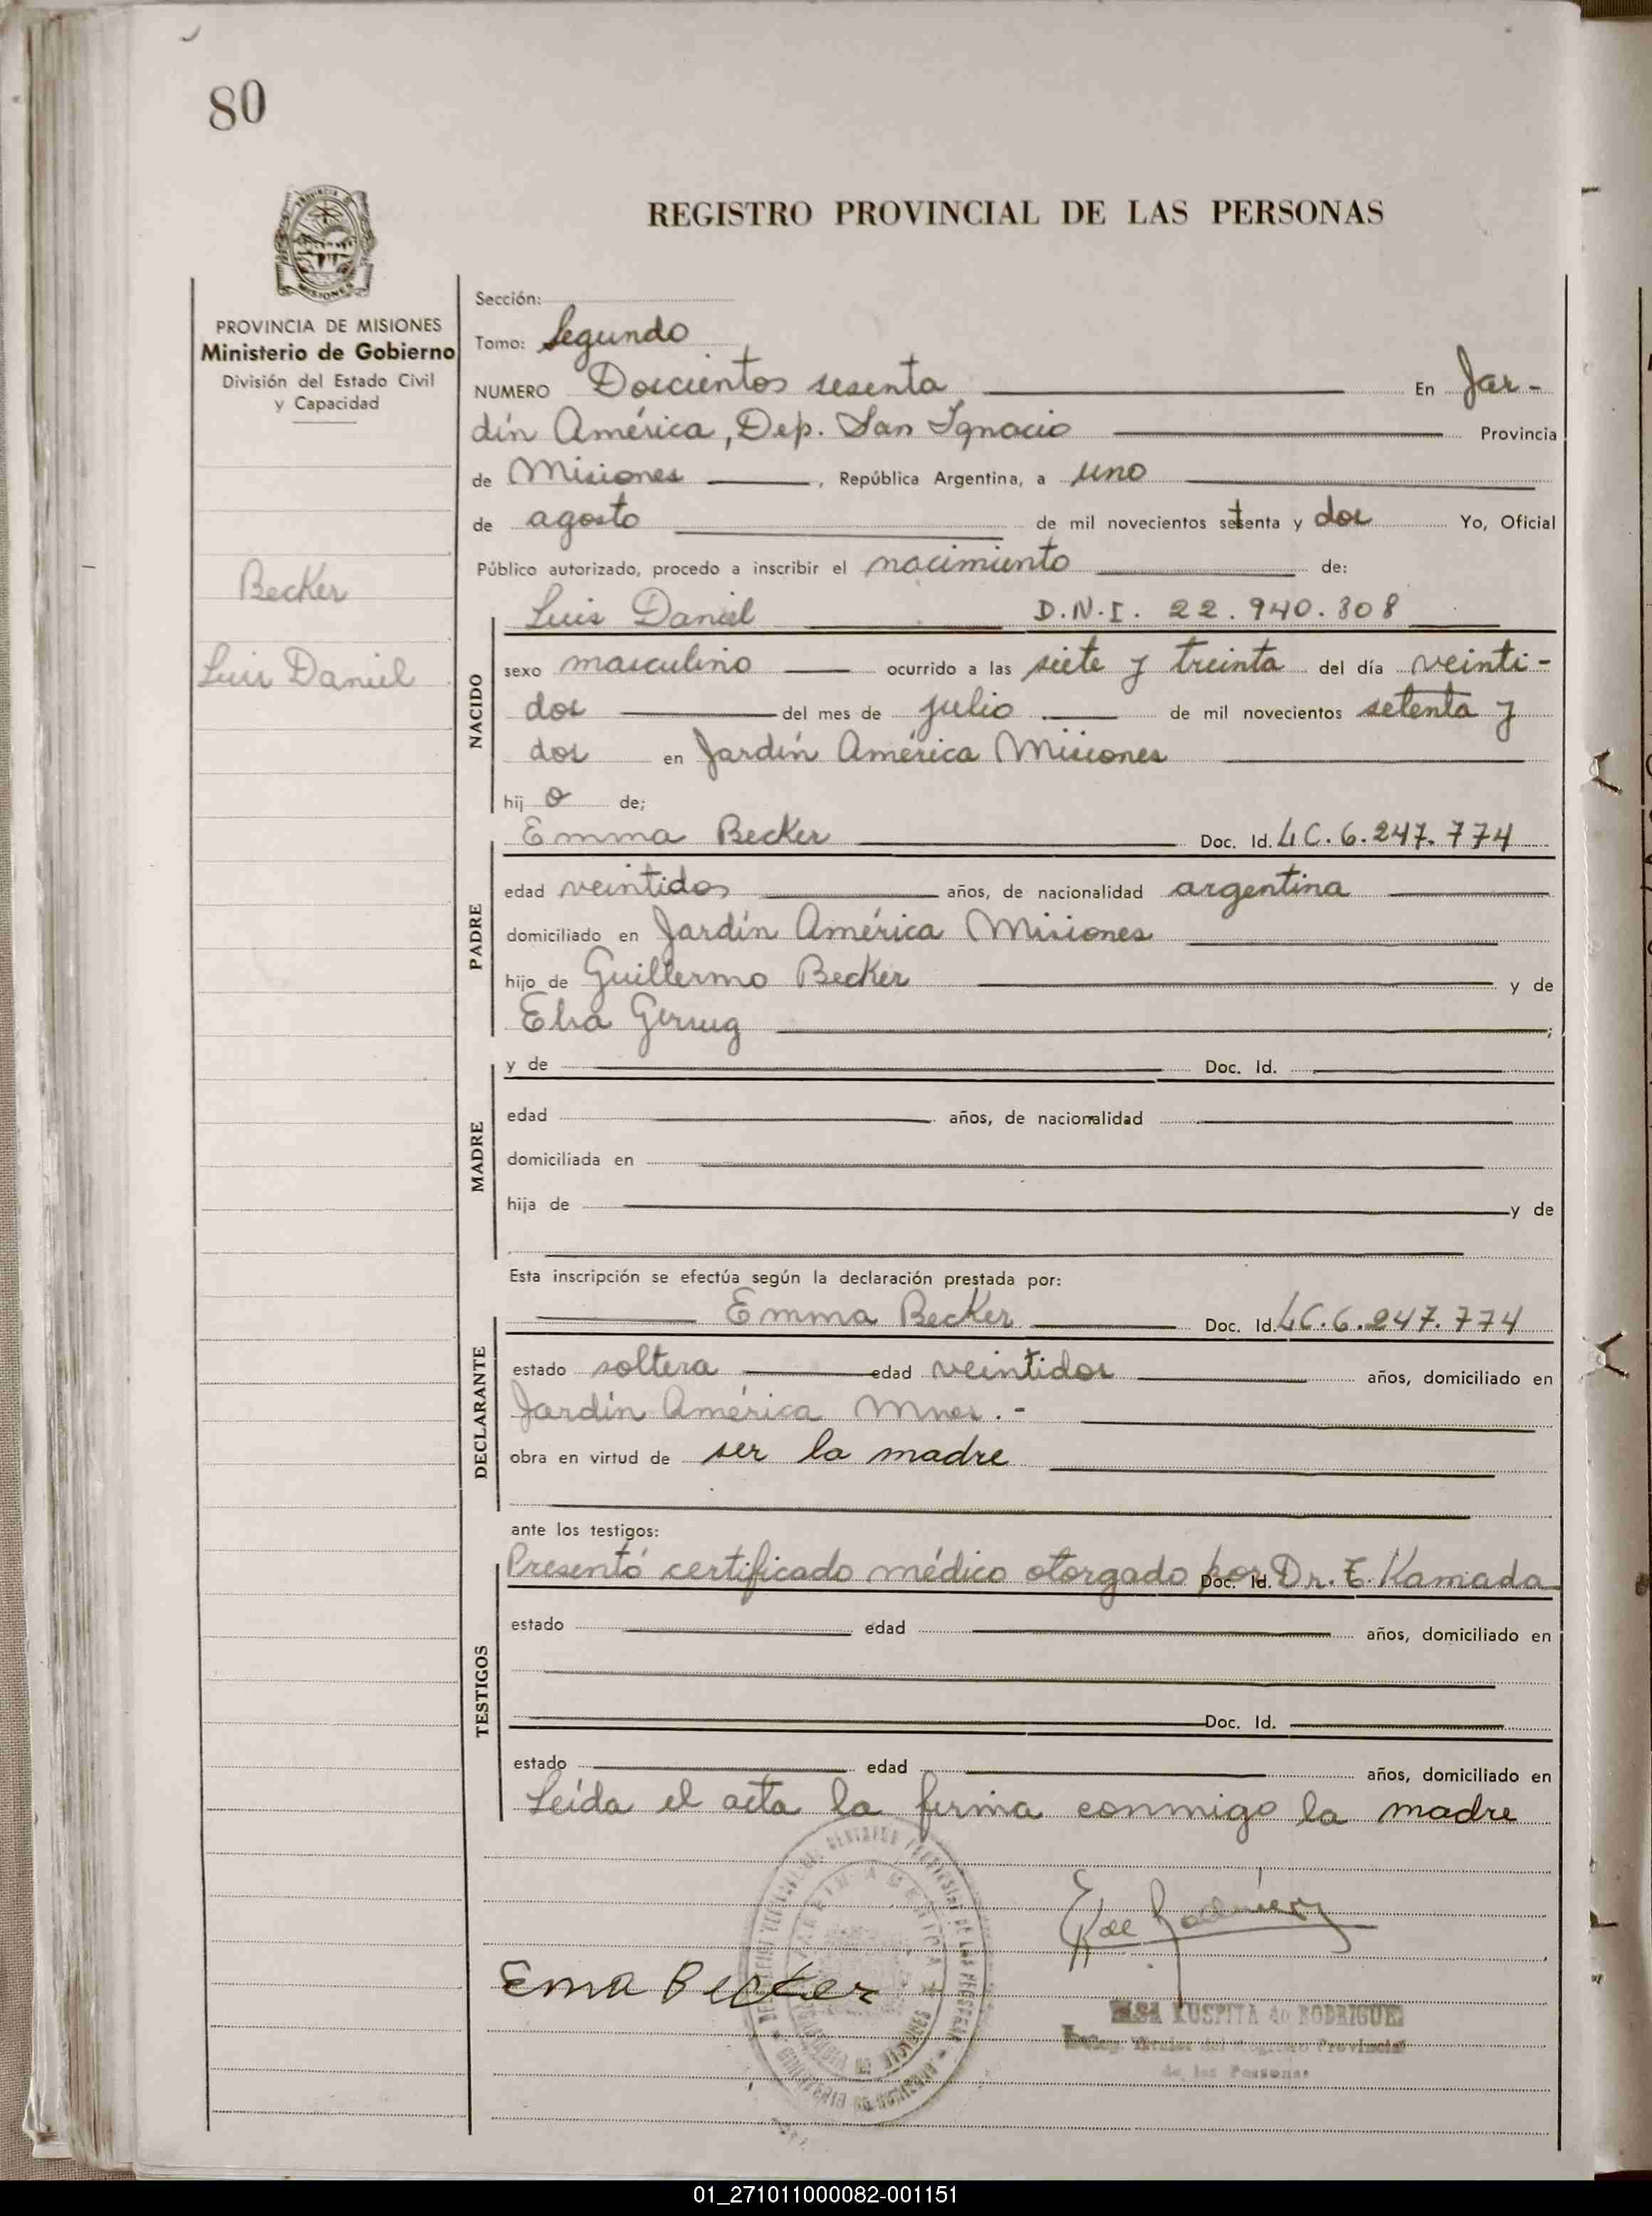 80
REGISTRO PROVINCIAL DE LAS PERSONAS
PROVINCIA DE MISIONES
Ministerio de Gobierno
División del Estado Civil
y Capacidad
Becker
Luis Daniel
Sección:
Tomo: Segundo
NUMERO Doscientos sesenta En Jar-
dín América, Dep. San Ignacio Provincia
de Misiones, República Argentina, a uno
de agosto de mil novecientos setenta y dos Yo, Oficial
Público autorizado, procedo a inscribir el nacimiento de:
Luis Daniel D.N.I. 22.940.808
NACIDO
sexo masculino ocurrido a las siete y treinta del día veinti-
dos del mes de julio de mil novecientos setenta y
dos en Jardín América Misiones
hij o de;
Emma Becker Doc. Id. LC. 6.247.774
PADRE
edad veintidos años, de nacionalidad argentina
domiciliado en Jardín América Misiones
hijo de Guillermo Becker y de
Elsa
MADRE
y de Doc. Id.
edad años, de nacionalidad
domiciliada en
hija de y de
Esta inscripción se efectúa según la declaración prestada por:
Emma Becker Doc. Id. LC. 6.247.774
DECLARANTE
estado soltera edad veintidos años, domiciliado en
Jardín América Mnes.-
obra en virtud de ser la madre
ante los testigos:
TESTIGOS
Presentó certificado médico otorgado por Doc. Id. Dr. E. Kamada
estado edad años, domiciliado en
Doc. Id.
estado edad años, domiciliado en
Leída el acta la firma conmigo la madre
Ema Becker
KUSPITA de RODRIGUE
Titular del Registro Provincial
de las Personas
01_271011000082-001151